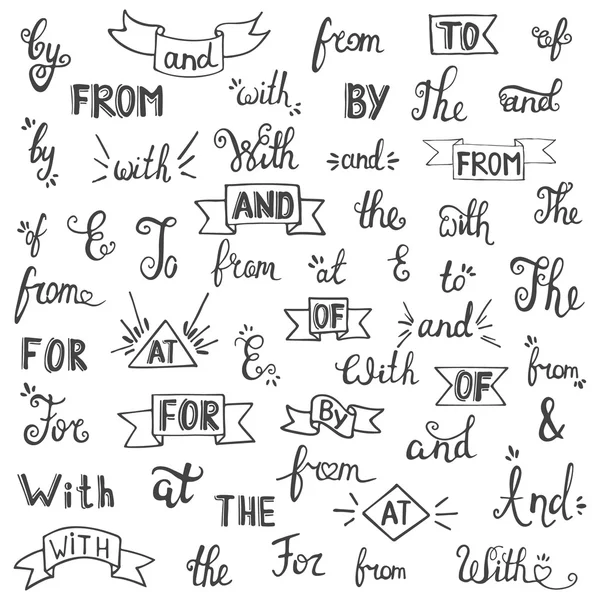 by and from TO of
FROM with BY The and
by with With and FROM
AND the with The
of & To from at & to The
from AT OF and
FOR & With OF from
For FOR By and &
With at THE from AT And
WiTH the For from With